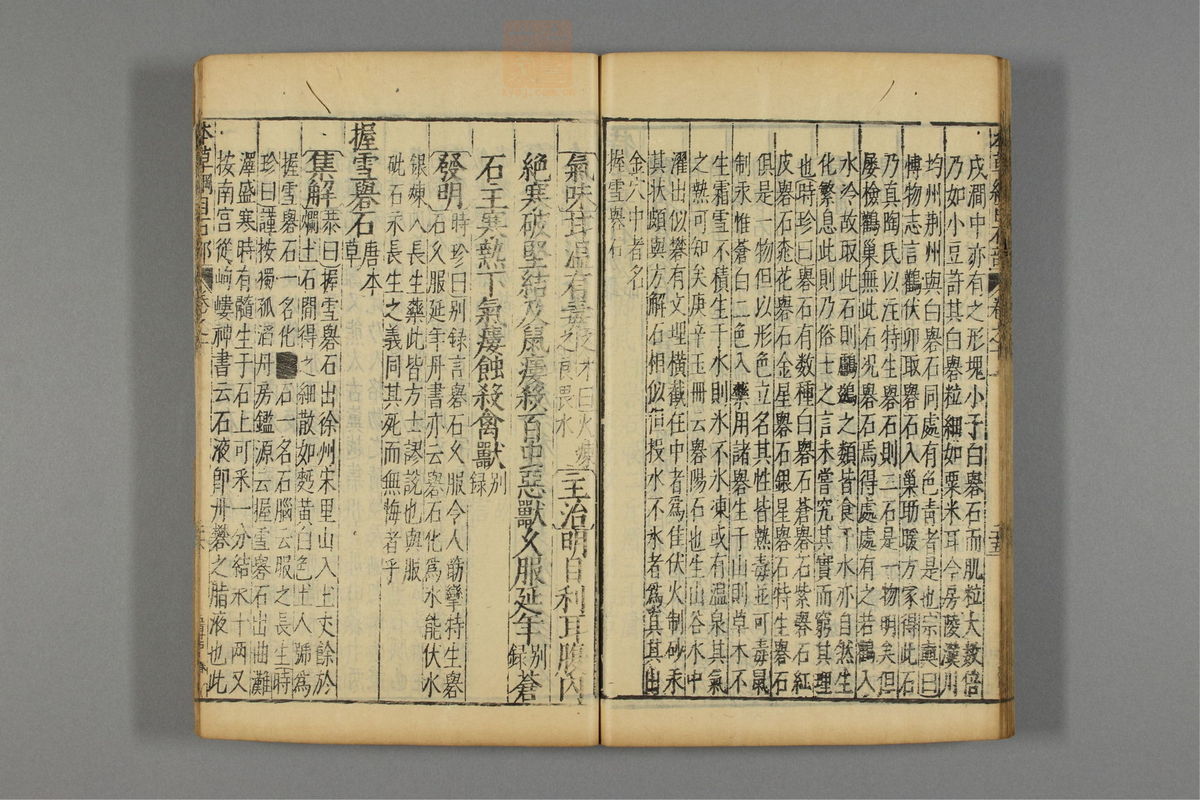 戌澗中亦有之形塊小子白礜石而肌粒大數倍
乃如小豆許其白礜粒細如粟米耳今房陵漢川
均州荆州與白礜石同處有色青者是也宗奭曰
博物志言鸛伏卵取礜石入巢助暖方家得此石
乃真陶氏以注特生礜石則二石是一物明矣但
屢檢鸛巢無此石况礜石焉得處處有之若鸛入
水冷故取此石則鸕鷀之類皆食于水亦自然生
化繁息此則乃俗士之言未嘗究其實而窮其理
也時珍曰礜石有數種白礜石蒼礜石紫礜石紅
皮礜石桃花礜石金星礜石銀星礜石特生礜石
俱是一物但以形色立名其性皆熱毒並可毒鼠
制汞惟蒼白二色入藥用諸礜生于山則草木不
生霜雪不積生于水則水不冰凍或有溫泉其氣
之熱可知矣庚辛玉冊云礜陽石也生山谷水中
濯出似礬有文理橫截在中者爲佳伏火制砂汞
其狀頗與方解石相似但投水不冰者爲真其出
金穴中者名
握雪礜石
氣味甘溫有毒之才曰火煉之良畏水主治明目利耳腹内
絶寒破堅結及鼠瘻殺百蟲惡獸久服延年别録蒼
石主寒熱下氣瘻蝕殺禽獸别録
發明時珍曰别録言礜石久服令人筋攣特生礜
石久服延年丹書亦云礜石化爲水能伏水
銀煉入長生藥此皆方士謬說也與服
砒石汞長生之義同其死而無悔者乎
握雪礜石唐本草
集解恭曰握雪礜石出徐州宋里山入土丈餘於
爛土石間得之細散如麪黃白色土人號爲
握雪礜石一名化 石一名石腦云服之長生時
珍曰謹按獨孤滔丹房鑑源云握雪礜石出曲灘
澤盛寒時有髓生于石上可采一分結汞十兩又
按南宫從岣嶁神書云石液即丹礬之脂液也此